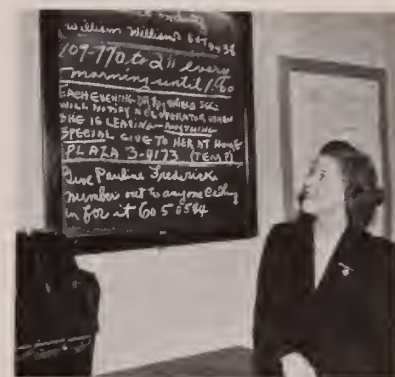 William Williams
109-770 to 211 every
morning until 1:30
EACH EVENING- SEC.
WILL NOTIFY N.E. OPERATOR WHEN
SHE IS LEAVING- ANYTHING
SPECIAL GIVE TO HER AT HOME
PLAZA 3-9173 (TEMP)
Give Pauline Frederick
number out to anyone calling
in for it Co 5 0584